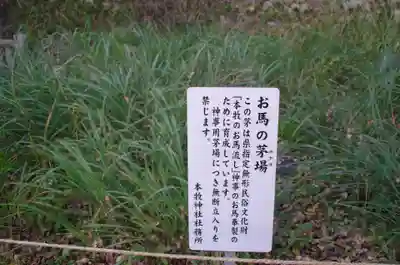 お馬の茅場
この茅は県指定無形民俗文化財
「本牧のお馬流し」神事のお馬奉製の
ために育成しています。
神事用茅場につき無断立入りを
禁じます。
本牧神社社務所